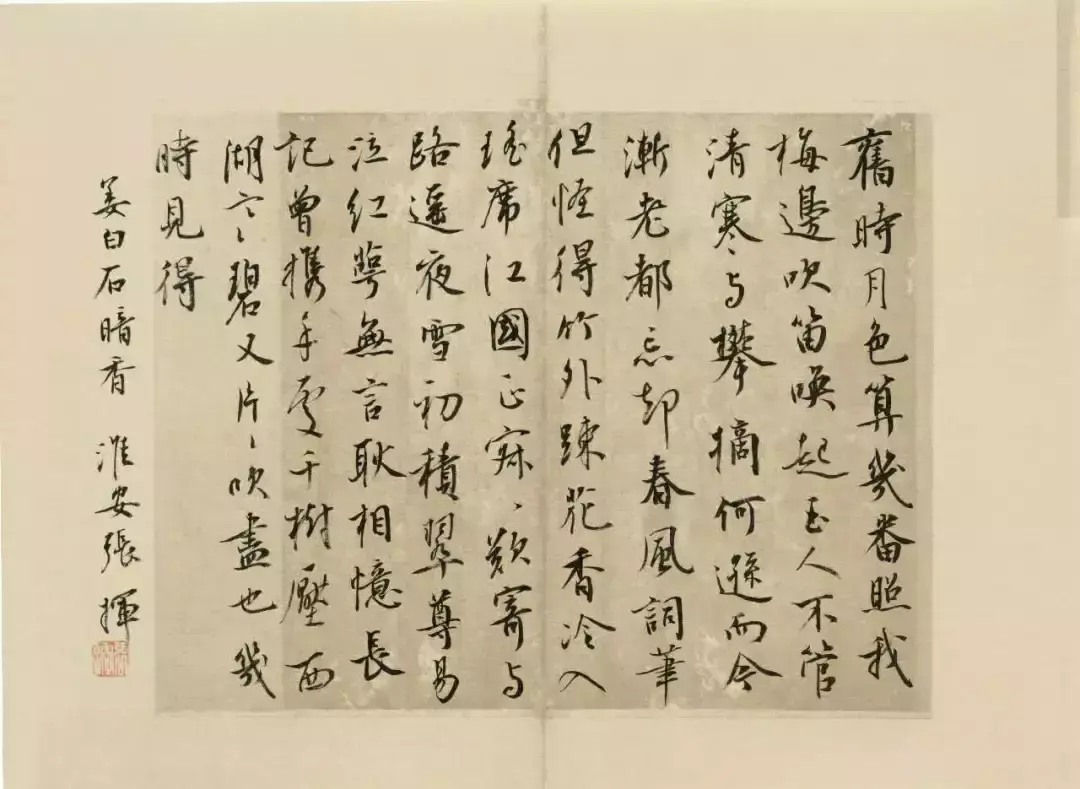 舊時月色算幾番照我
梅邊吹笛喚起玉人不管
清寒与攀摘何遜而今
漸老都忘却春風詞筆
但怪得竹外踈花香冷入
瑤席江國正寂、歎寄与
路遥夜雪初積翠尊易
泣紅萼無言耿相憶長
記曾攜手處千樹壓西
湖寒、碧又片、吹盡也幾
時見得
姜白石暗香 淮安張揮